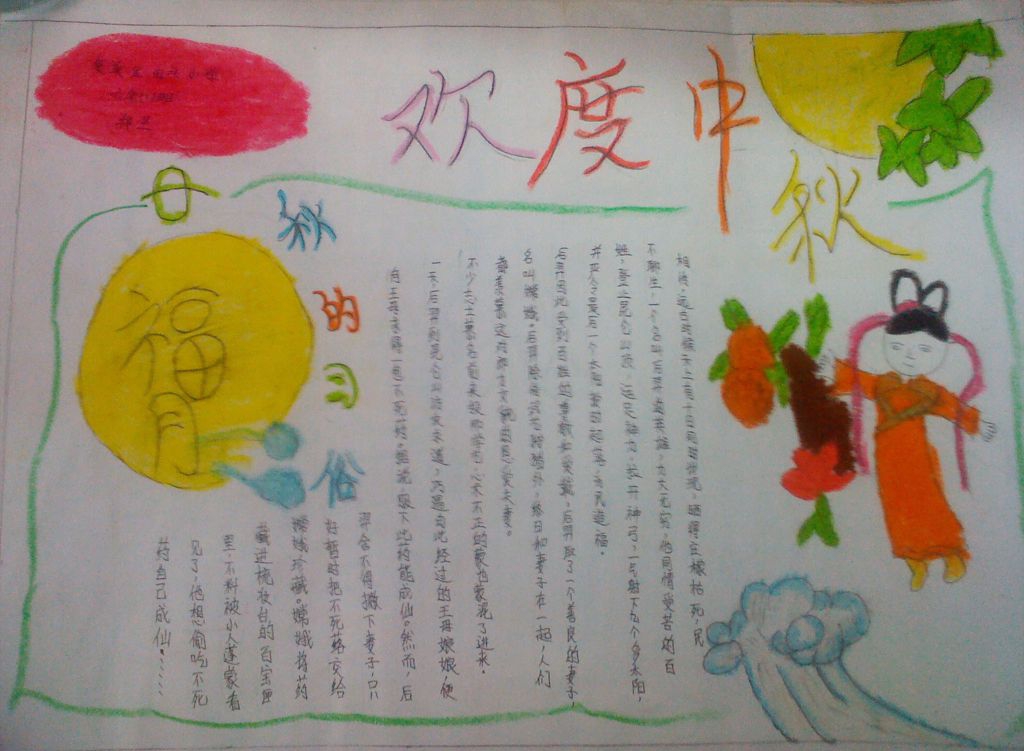 欢度中秋
中秋的习俗
福
月
相传,远古时候天上有十日同时出现,晒得庄稼枯死,民
不聊生,一个名叫后羿的英雄,力大无穷,他同情受苦的百
姓,登上昆仑山顶,运足神力,拉开神弓,一气射下九个多太阳,
并严令最后一个太阳按时起落,为民造福。
后羿因此受到百姓的尊敬和爱戴,后羿娶了一个善良的妻子,
名叫嫦娥。后羿除传艺狩猎外,终日和妻子在一起,人们
都羡慕这对郎才女貌的恩爱夫妻。
不少志士慕名前来投师学艺,心术不正的蓬蒙也混了进来。
一天,后羿到昆仑山访友求道,巧遇由此经过的王母娘娘,便
向王母求得一包不死药。据说,服下此药能成仙。然而,后
羿舍不得撇下妻子,只
好暂时把不死药交给
嫦娥珍藏。嫦娥将药
藏进梳妆台的百宝匣
里,不料被小人蓬蒙看
见了,他想偷吃不死
药自己成仙。……